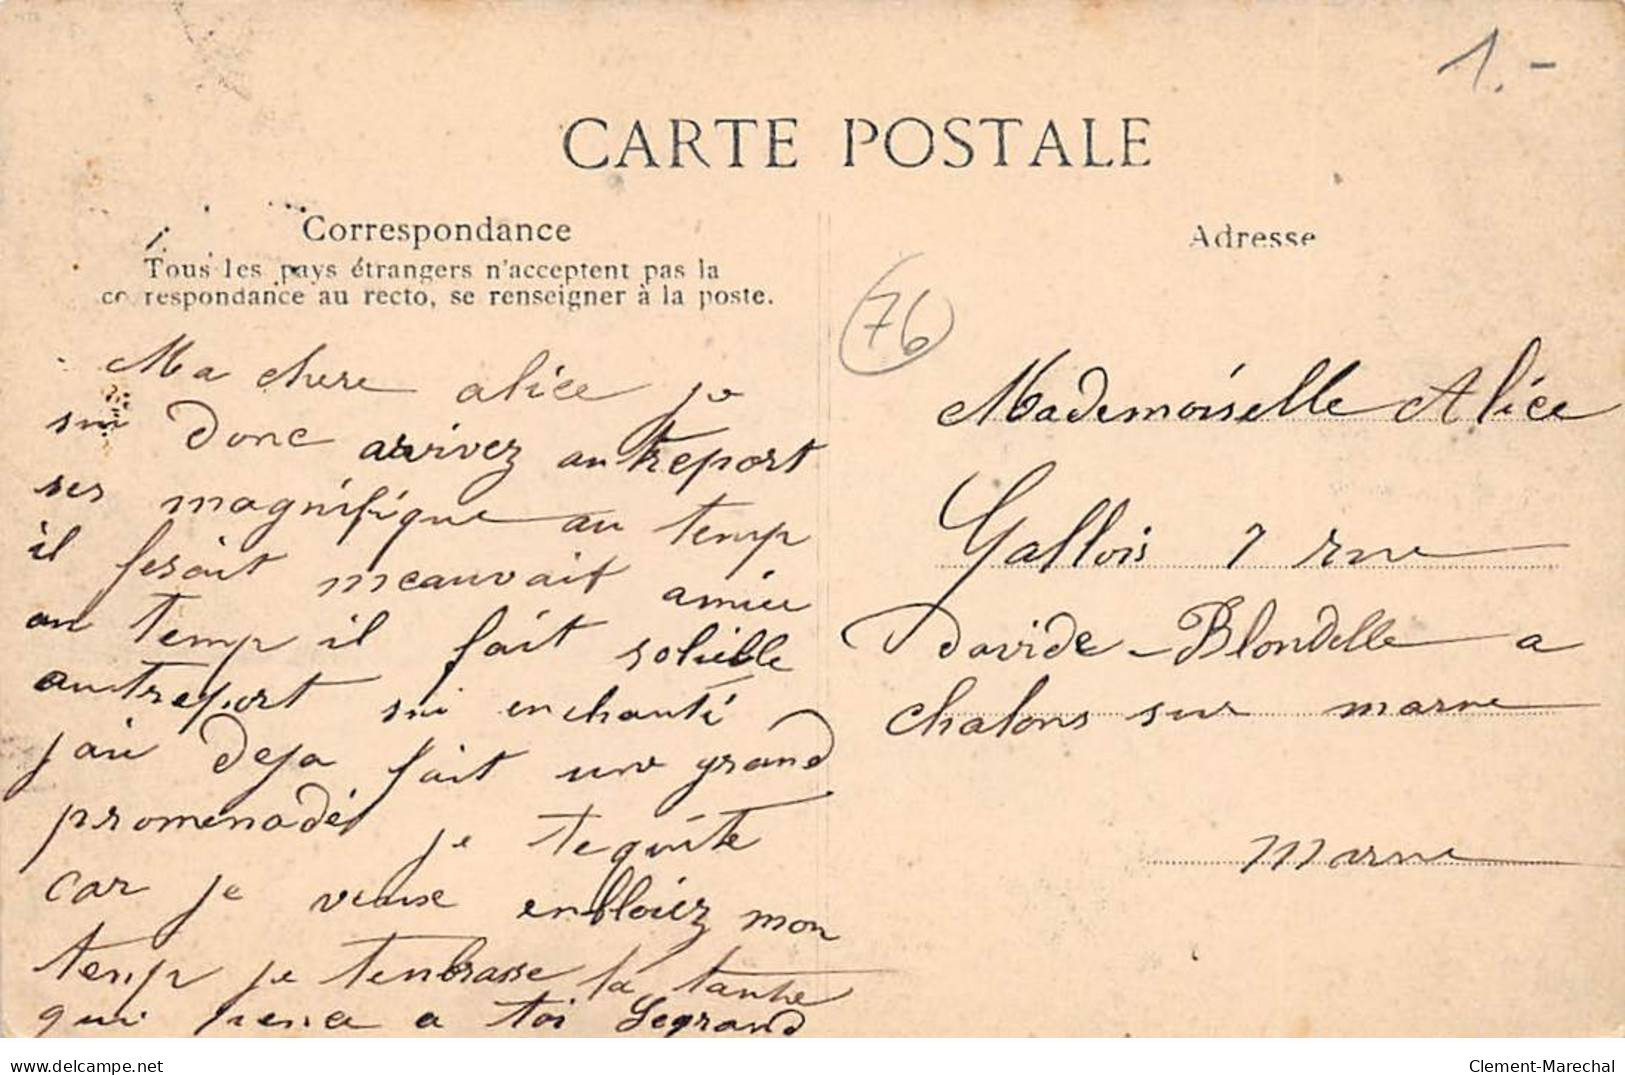 1.-
CARTE POSTALE
Correspondance
Tous les pays étrangers n'acceptent pas la
correspondance au recto, se renseigner à la poste.
Adresse
76
Ma chere alice je
sui donc arrivez autreport
ses magnifique au temp
il fesait meauvait
au temp il fait
autreport sui enchanté
jai deja fait une grand
promenadé je tequite
car je veuse enbloiez mon
temp je tenbrasse ta tante
qui pense a toi Legrand
Mademoiselle Alice
Gallois 7 rue
Davide-Blondelle a
chalons sur marne
Marne
delcampe.net
Clement-Marechal